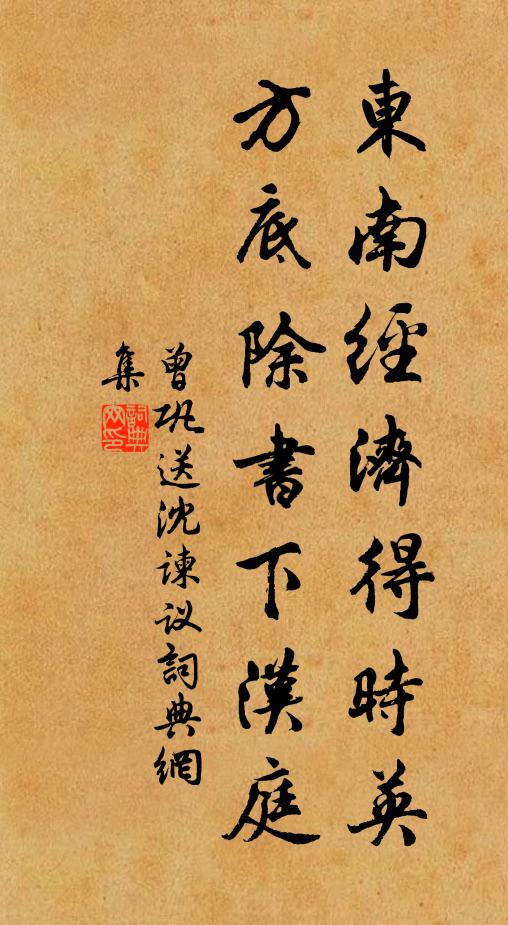 東南經濟得時英
方底除書下漢庭
曾巩送沈諫议詞典網
集
詞典網印